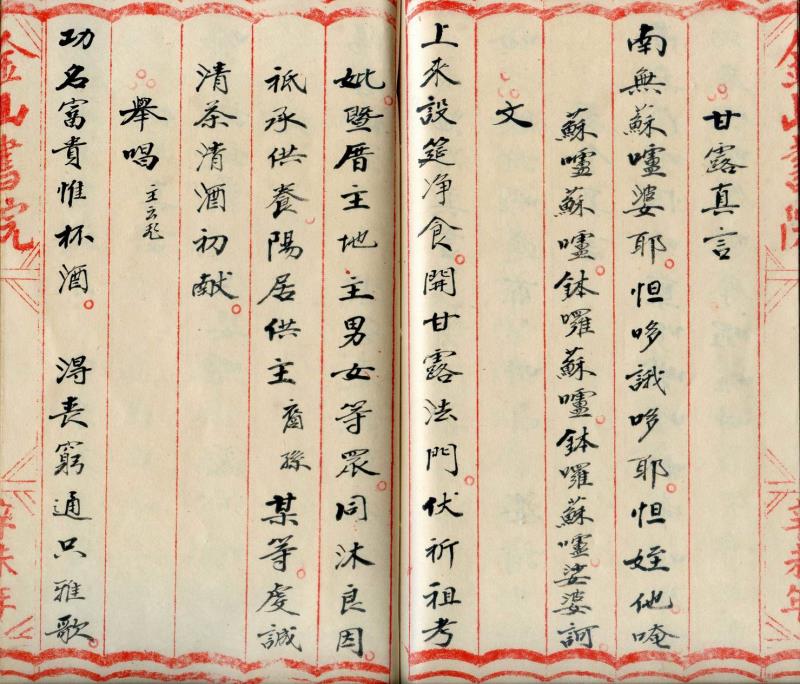 甘露真言
南無蘇嚧婆耶。怛哆誐哆耶。怛姪他。唵
蘇嚧蘇嚧。鉢囉蘇嚧。鉢囉蘇嚧。娑婆訶。
文
上來設筵净食。開甘露法門。伏祈祖考
妣。暨厝主地主男女等眾。同沐良因。
祇承供養。陽居供主 裔孫 某等虔誠
清茶清酒初献。
舉唱 主云起
功名富貴惟杯酒。 淂丧窮通只雅歌。
金山書院
辛未年
金山書院
辛未年